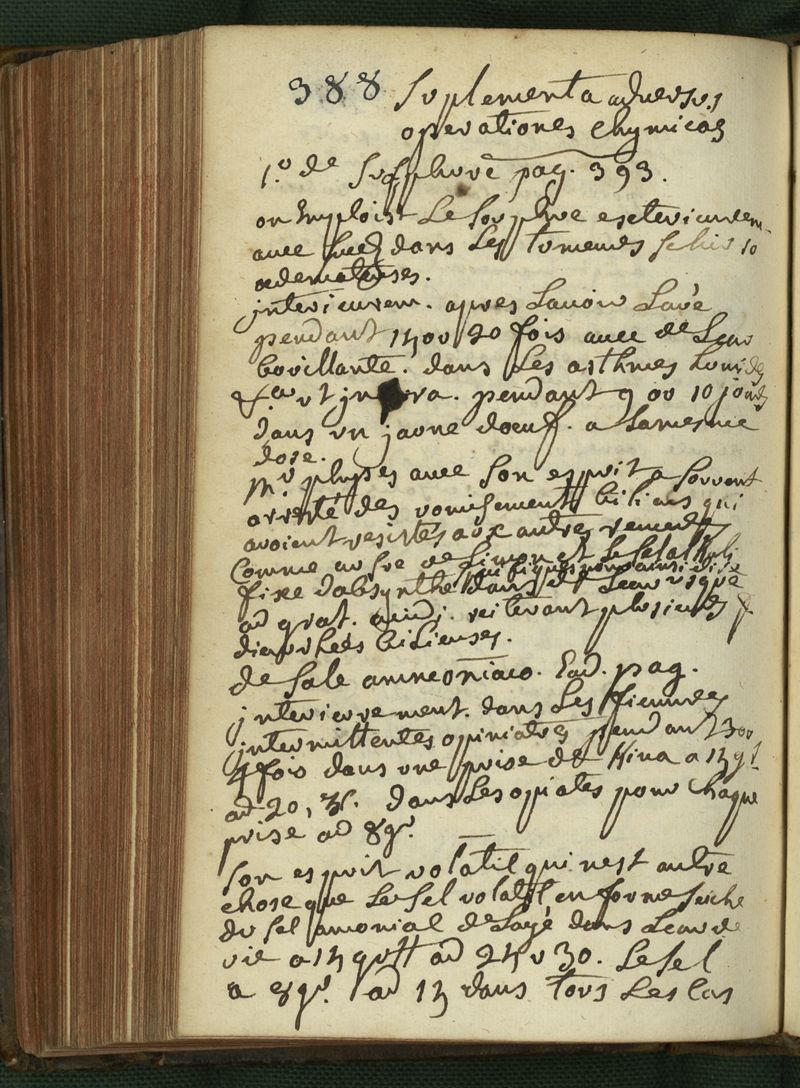 388 Suplementa adversus
operationes chymicas
1.o de Sulphure pag. 393.
on Emploit Le Souphre exterieurem.
avec succez dans Les tumeurs
œdemateuses.
jnterieurem. apres Lavoir Lavé
pendant 15 ou 20 fois avec de Leau
bouillante. dans Les asthmes humides
&.a ut jnfra. pendant 9 ou 10 jours
dans un jaune doeuf. a La mesme
dose.
Mr avec Son esprit a Souvent
arreté des vomissements bilieux qui
avoient resistes aux autres remedes
Comme au de Limon et Le Sel
fixe dabsynthe dans de Leau
ad grat. reiterant plusieurs f.
diarrhées bilieuses.
de Sale ammoniaco. Ead. pag.
jnterieurement. dans Les fievres
jntermittentes opiniatres pendant 3 ou
4 fois dans une prise de Kina a 15 gr.
ad 20, dans Les opiates pour chaque
prise ad 8 gr.
Son esprit volatil qui nest autre
chose que Le Sel volatil en forme Seiche
du Sel amonial dans Leau de
vie a 15 gutt ad 25 v 30. Le Sel
a 8 gr. ad 15 dans tous Les cas